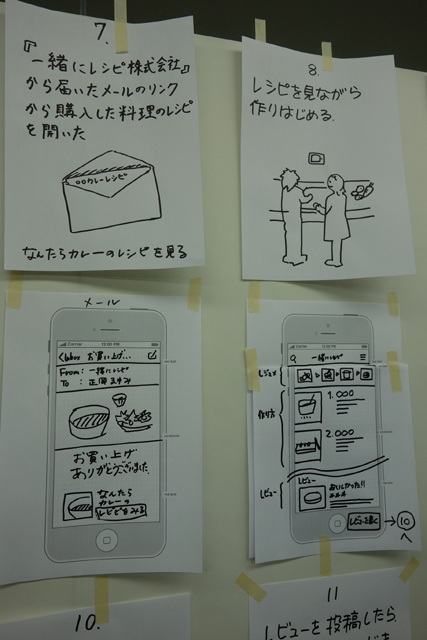 7.
『一緒にレシピ株式会社』
から届いたメールのリンク
から購入した料理のレシピ
を開いた
○○カレーレシピ
なんたらカレーのレシピを見る
8.
レシピを見ながら
作りはじめる.
メール
Carrier 12:00 PM
<Inbox お買い上げ...
From: 一緒にレシピ
To :
お買い上げ
ありがとうございました.
なんたら
カレーの
レシピをみる
Carrier 12:00 PM
一緒にレシピ
作り方
1. ○○○
2. ○○○
レビュー
レビュー
おいしかった!!
レビューを書く
→ 10
へ
10.
11
レビューを投稿したら,